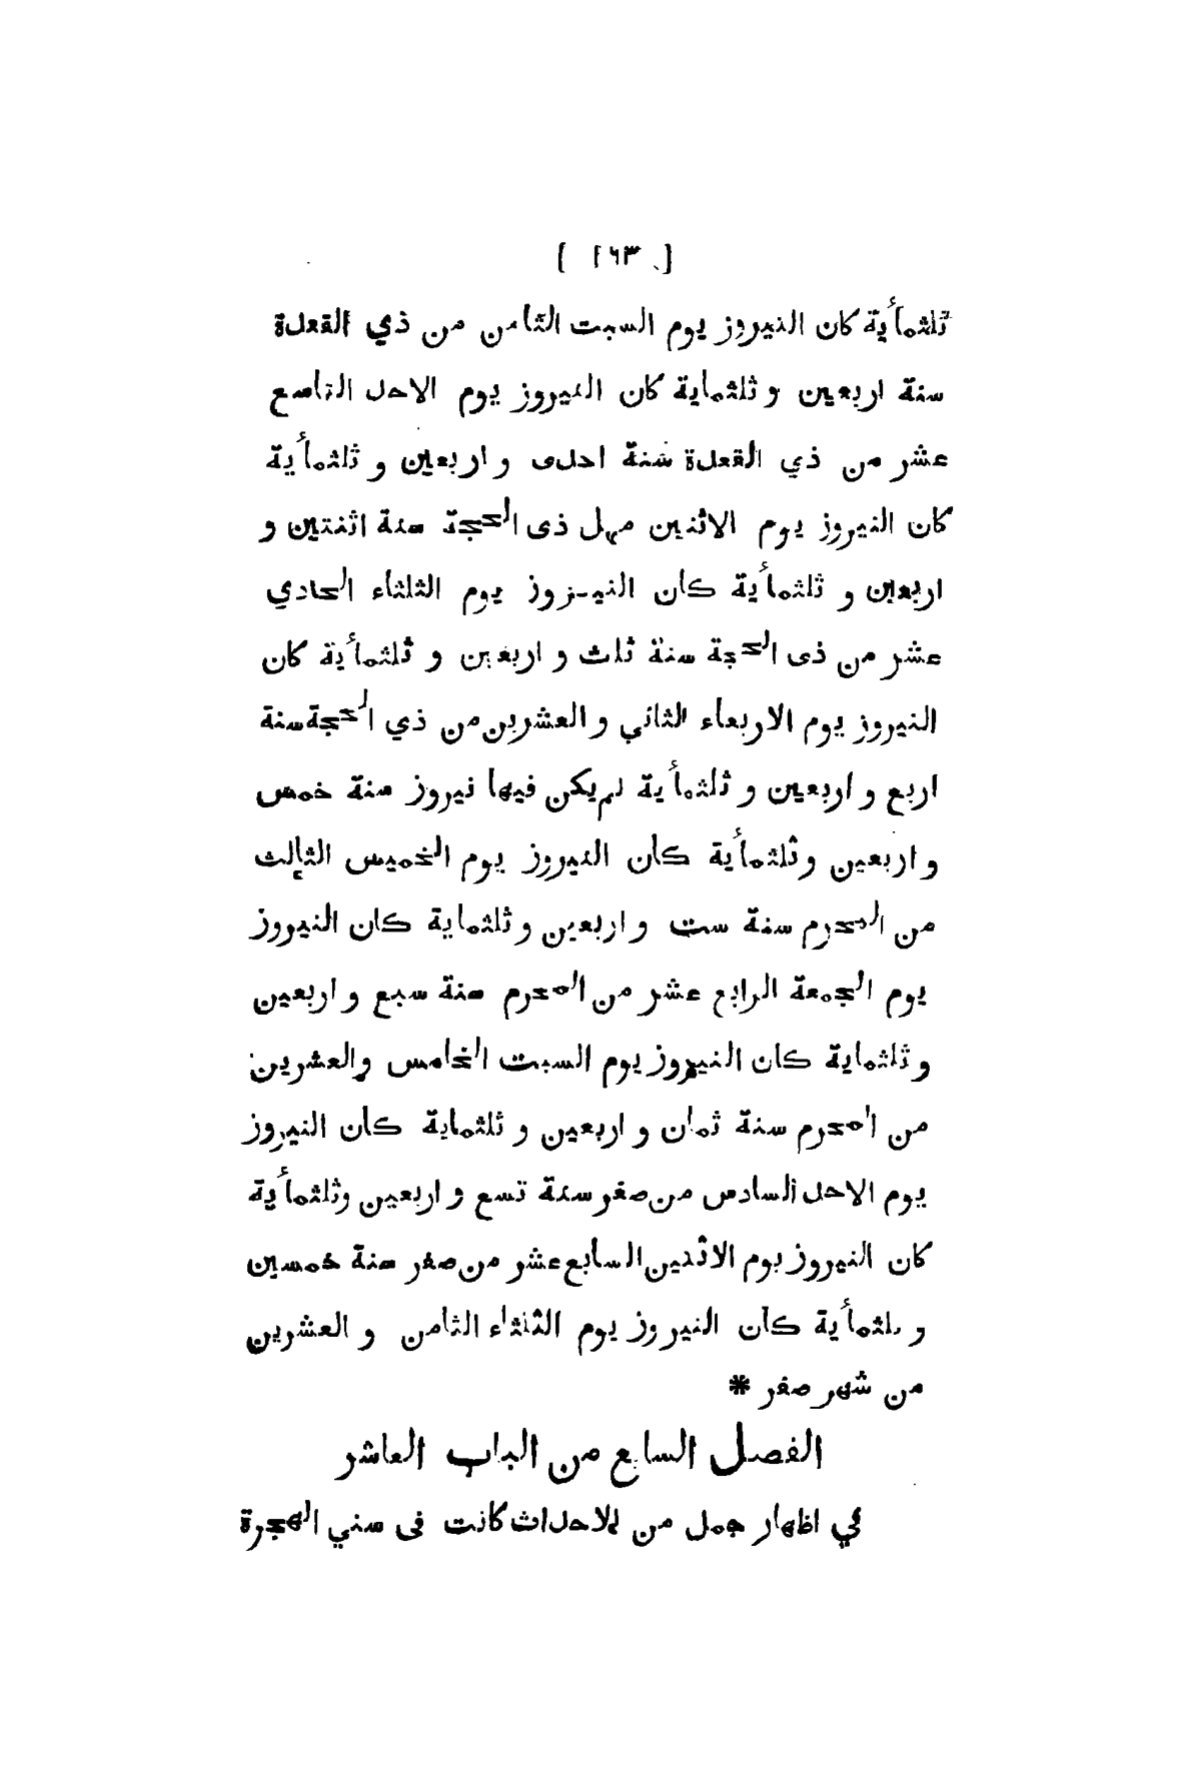 [ ١٦٣ ]
ثلثمأية كان النيروز يوم السبت الثامن من ذي القعدة
سنة اربعين و ثلثماية كان النيروز يوم الاحد التاسع
عشر من ذي القعدة سنة احدى و اربعين و ثلثمأية
كان النيروز يوم الاثنين مهل ذى الحجة سنة اثنتين و
اربعين و ثلثمأية كان النيروز يوم الثلثاء الحادي
عشر من ذى الحجة سنة ثلث و اربعين و ثلثمأية كان
النيروز يوم الاربعاء الثاني و العشرين من ذي الحجة سنة
اربع و اربعين و ثلثمأية لم يكن فيها نيروز سنة خمس
و اربعين وثلثمأية كان النيروز يوم الخميس الثالث
من المحرم سنة ست و اربعين و ثلثماية كان النيروز
يوم الجمعة الرابع عشر من المحرم سنة سبع و اربعين
و ثلثماية كان النيروز يوم السبت الخامس والعشرين
من المحرم سنة ثمان و اربعين و ثلثماية كان النيروز
يوم الاحد السادس من صفر سنة تسع و اربعين وثلثمأية
كان النيروز يوم الاثنين السابع عشر من صفر سنة خمسين
و ثلثمأية كان النيروز يوم الثلثاء الثامن و العشرين
من شهر صفر *
الفصل السابع من الباب العاشر
في اظهار جمل من الاحداث كانت فى سني الهجرة